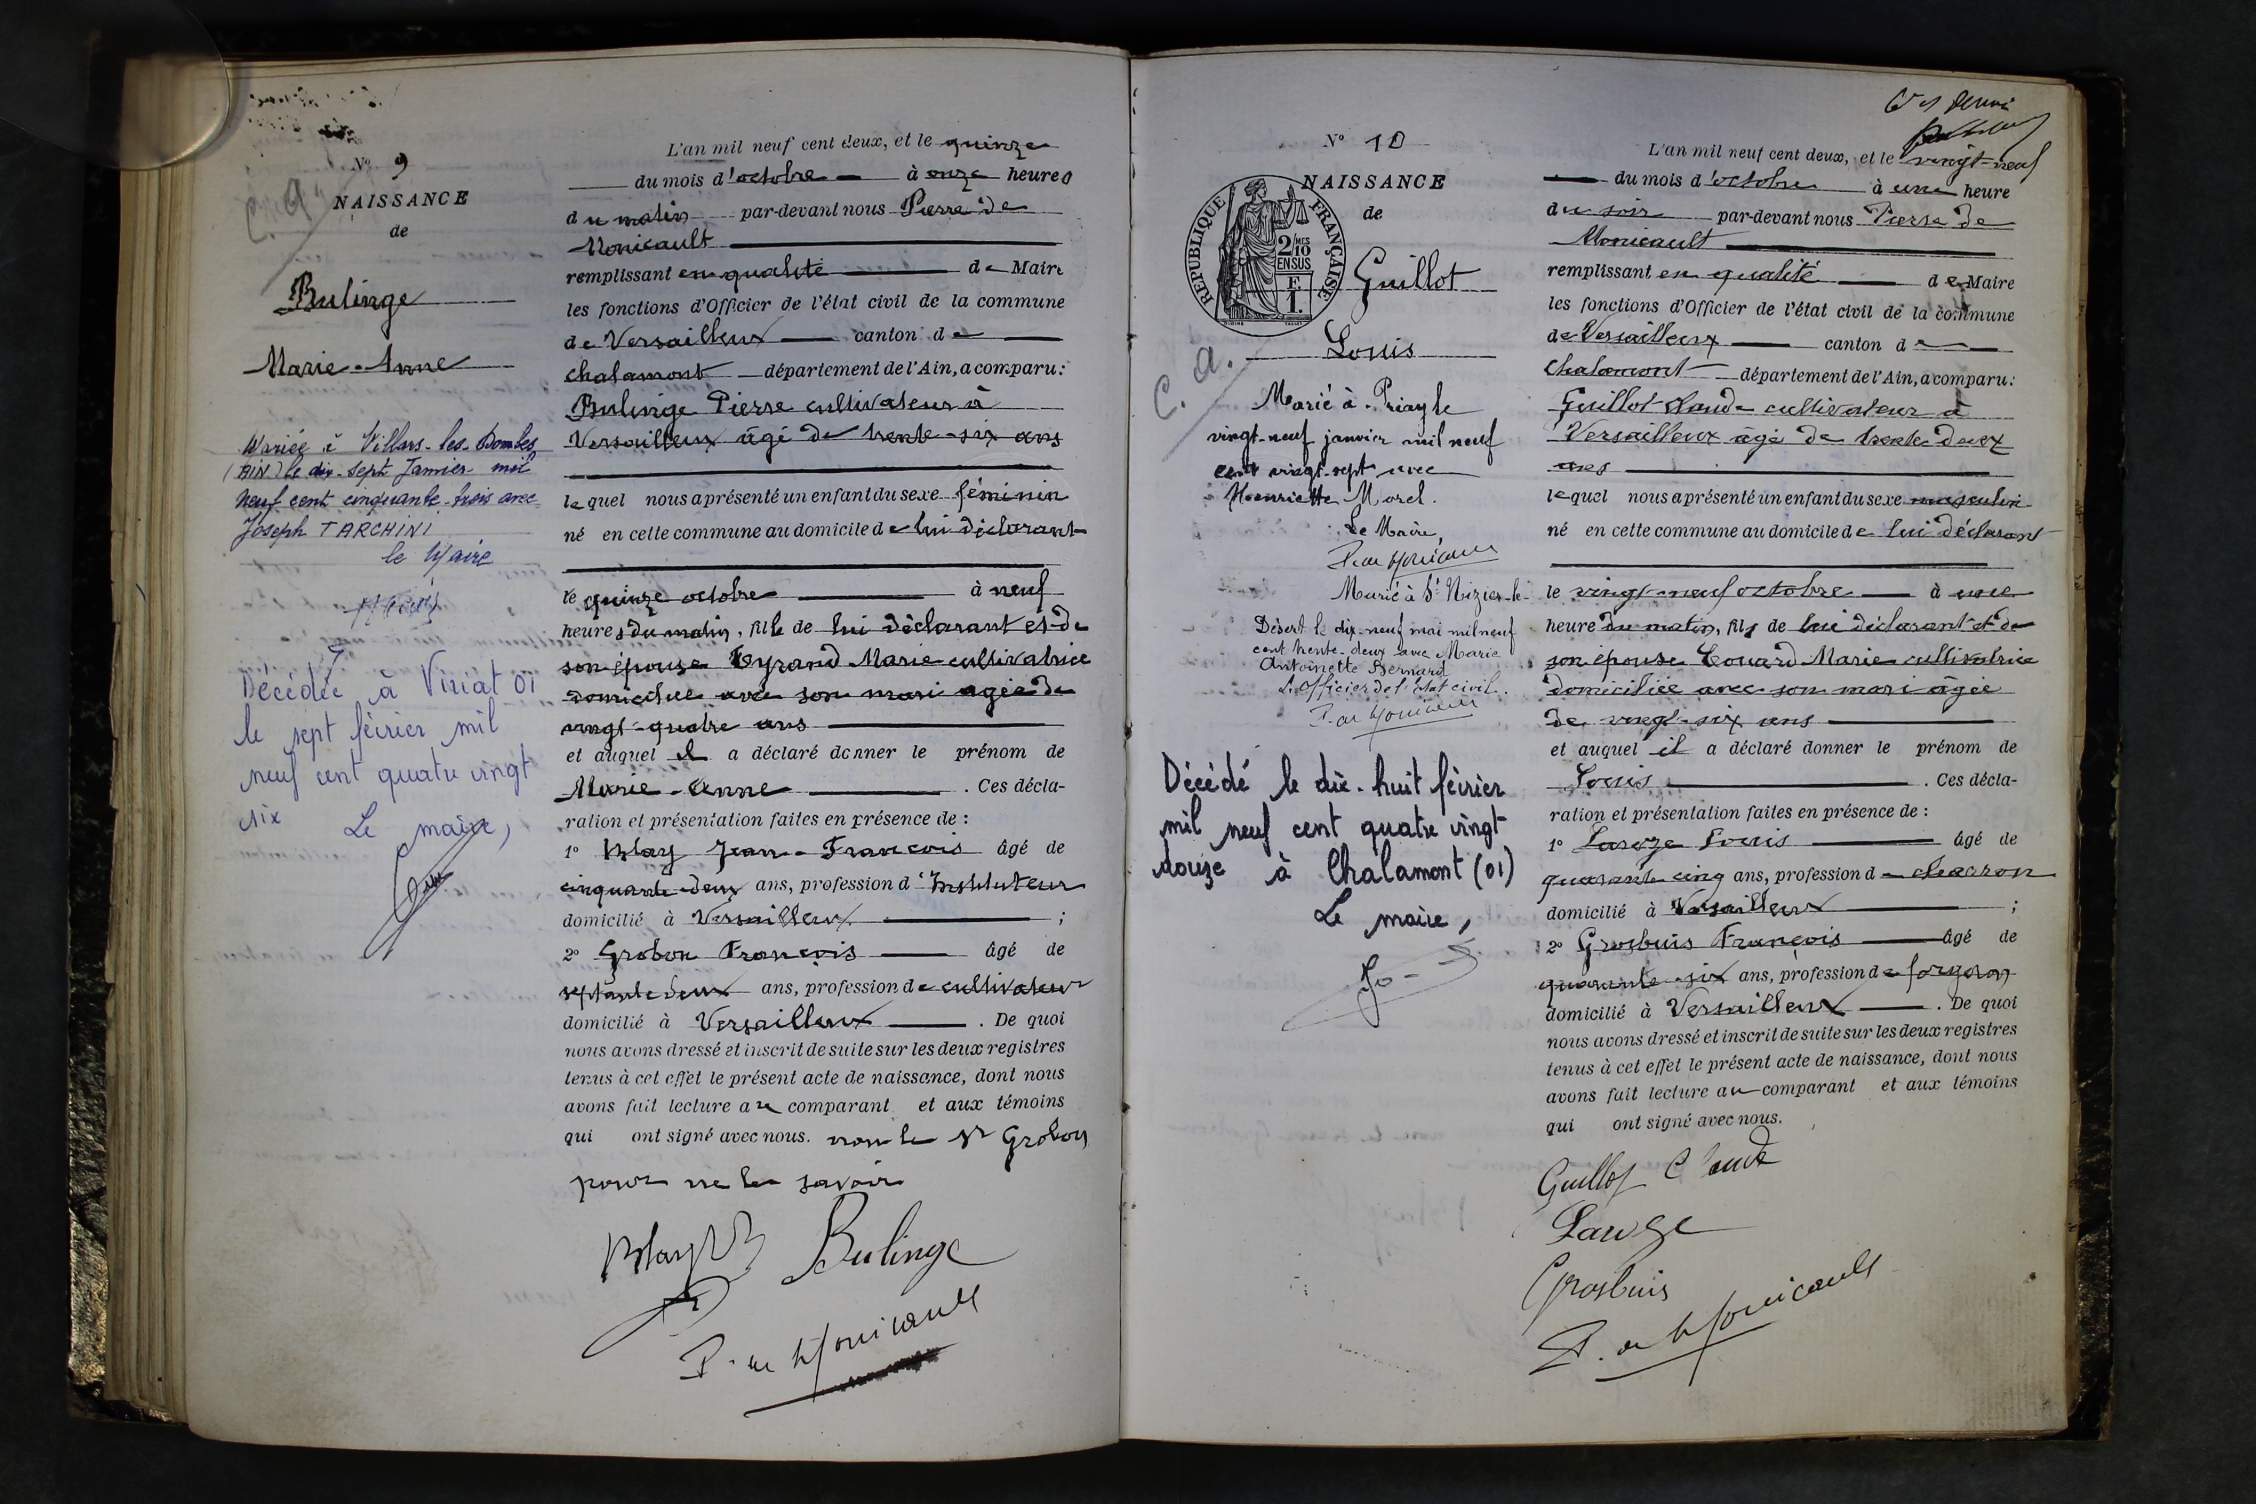 N° 9
NAISSANCE
de
Bulinge
Marie-Anne
Mariée à Villars-les-Dombes
(AIN) le dix-sept Janvier mil
neuf cent cinquante-trois avec
Joseph TARCHINI
le Maire
Décédée à Viriat 01
le sept février mil
neuf cent quatre vingt
six
Le maire,
L'an mil neuf cent deux, et le quinze
du mois d'octobre à onze heures
du matin par-devant nous Pierre de
Monicault
remplissant en qualité de Maire
les fonctions d'Officier de l'état civil de la commune
de Versailleux canton de
Chalamont département de l'Ain, a comparu :
Bulinge Pierre cultivateur à
Versailleux âgé de trente-six ans
lequel nous a présenté un enfant du sexe féminin
né en cette commune au domicile de lui déclarant
le quinze octobre à neuf
heures du matin, fille de lui déclarant et de
son épouse Eyrand Marie cultivatrice
domiciliée avec son mari agée de
vingt-quatre ans
et auquel il a déclaré donner le prénom de
Marie-Anne . Ces décla-
ration et présentation faites en présence de :
1° Blay Jean-François âgé de
cinquante-deux ans, profession d'Instituteur
domicilié à Versailleux ;
2° Grobon François âgé de
septante deux ans, profession de cultivateur
domicilié à Versailleux . De quoi
nous avons dressé et inscrit de suite sur les deux registres
tenus à cet effet le présent acte de naissance, dont nous
avons fait lecture au comparant et aux témoins
qui ont signé avec nous. non le Sr Grobon
pour ne le savoir
Blay Bulinge
P. de Monicault
N° 10
NAISSANCE
de
REPUBLIQUE FRANÇAISE
2/10 MES
EN SUS
F
1.
Guillot
Louis
C. a.
Marié à Priay le
vingt-neuf janvier mil neuf
cent vingt-sept avec
Henriette Morel.
Le Maire,
P. de Monicault
Marié à St Nizier-le-
Désert le dix-neuf mai mil neuf
cent trente-deux avec Marie
Antoinette Bernard
L'Officier de l'état civil.
P. de Monicault
Décédé le dix-huit février
mil neuf cent quatre vingt
douze à Chalamont (01)
Le maire,
L'an mil neuf cent deux, et le vingt-neuf
du mois d'octobre à une heure
du soir par-devant nous Pierre de
Monicault
remplissant en qualité de Maire
les fonctions d'Officier de l'état civil de la commune
de Versailleux canton de
Chalamont département de l'Ain, a comparu :
Guillot Claude cultivateur à
Versailleux âgé de trente deux
ans
lequel nous a présenté un enfant du sexe masculin
né en cette commune au domicile de lui déclarant
le vingt-neuf octobre à une
heure du matin, fils de lui déclarant et de
son épouse Marie cultivatrice
domiciliée avec son mari âgée
de vingt-six ans
et auquel il a déclaré donner le prénom de
Louis . Ces décla-
ration et présentation faites en présence de :
1° Laroze Louis âgé de
quarante cinq ans, profession de charron
domicilié à Versailleux ;
2° Grosbuis François âgé de
quarante-six ans, profession de forgeron
domicilié à Versailleux . De quoi
nous avons dressé et inscrit de suite sur les deux registres
tenus à cet effet le présent acte de naissance, dont nous
avons fait lecture au comparant et aux témoins
qui ont signé avec nous.
Guillot Claude
Grosbuis
P. de Monicault